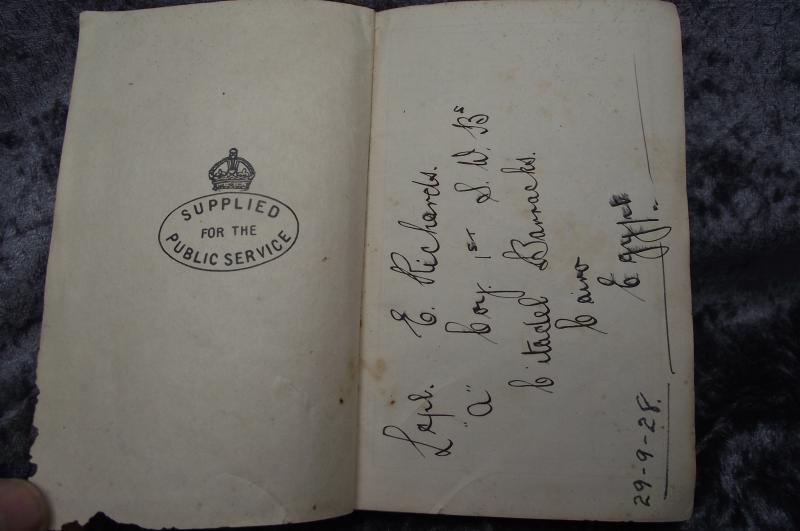 SUPPLIED
FOR THE
PUBLIC SERVICE
L/Cpl. E. Richards.
"A" Coy. 1ST S. W. Bs
Citadel Barracks.
Cairo
Egypt.
29-9-28.